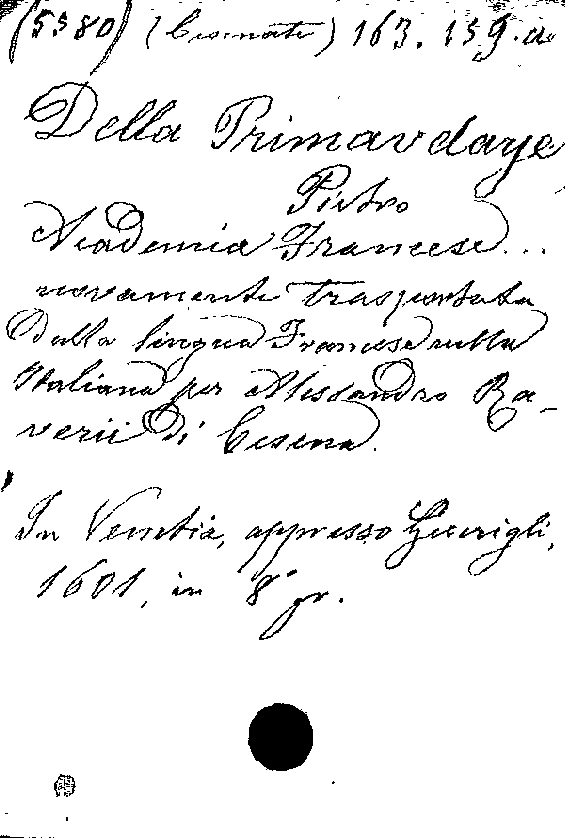 (5580) (Cesenate) 163. 159. a
Della Primavdaye
Pietro
Academia Francese...
novamente trasportata
Dalla lingua Francese nella
Italiana per Alessandro Ra-
verii Di Cesena.
In Venetia, appresso Guerigli,
1601, in 8° gr.